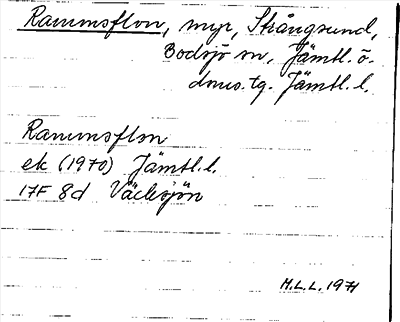 Rammsflon, myr, Strångsund,
Bodsjö sn, Jämtl. ö.
doms.tg. Jämtl. l.
Rammsflon
ek (1970) Jämtl. l.
17F 8d Väcksjön
H.L.L. 1971